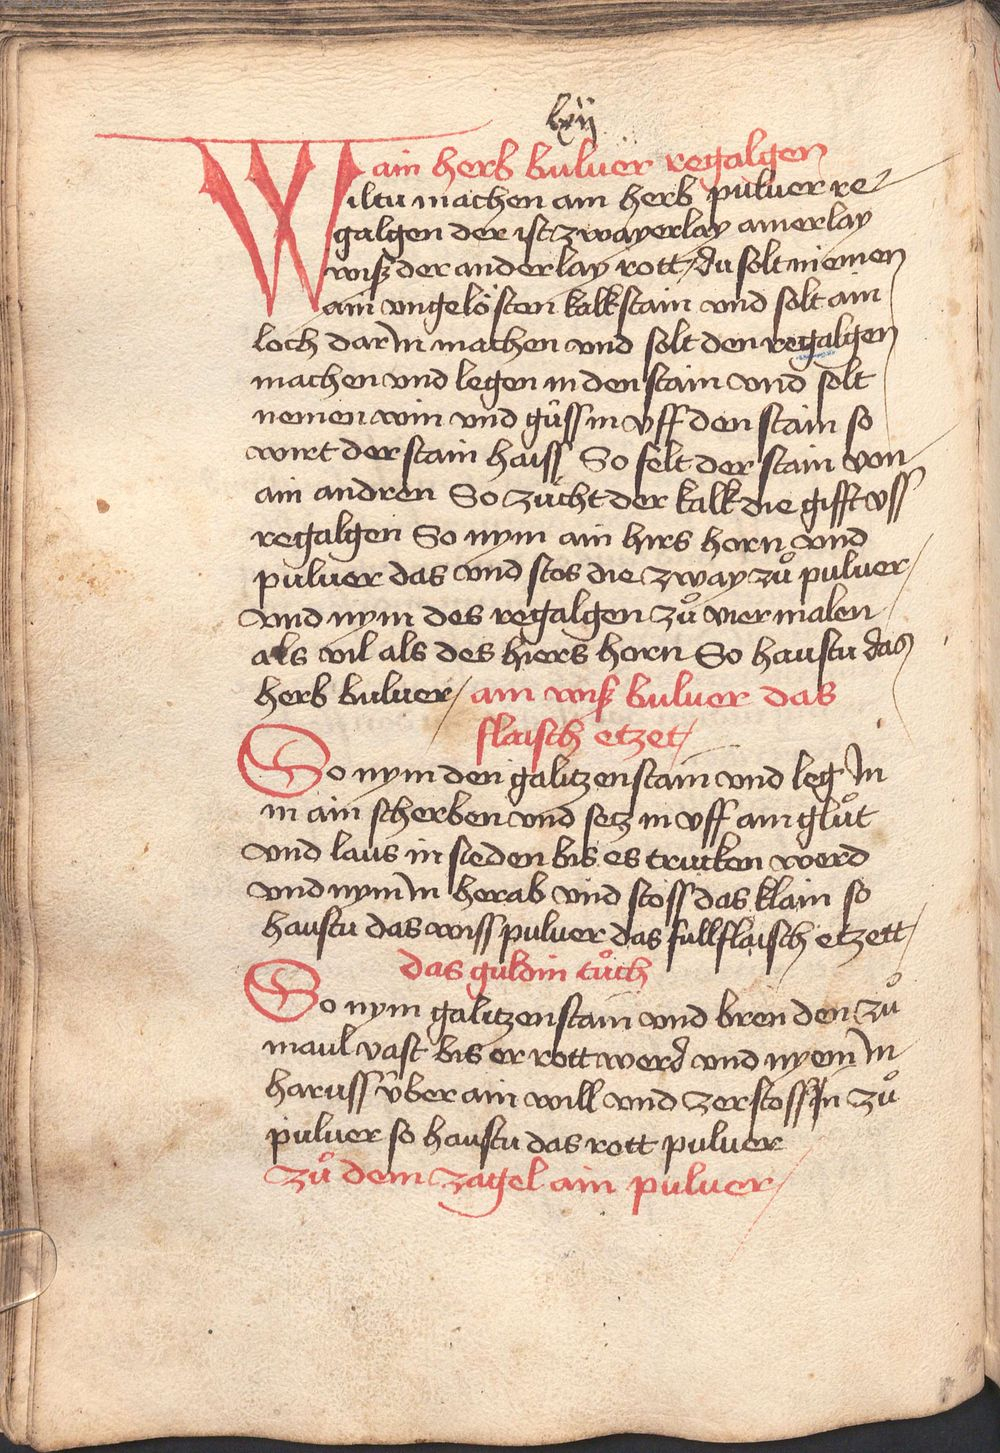 lxij
ain herb buluer regalgen
Wiltu machen ain herb puluer re
galgen der ist zwayerlay ainerlay
wiß der anderlay rott / du solt niemen
ain vngelösten kalkstain vnd solt ain
loch dar In machen vnd solt den regalgen
machen vnd legen in den stain vnd solt
nemen win vnd güss in vff den stain so
wirt der stain haiss So felt der stain von
ain andren So zücht der kalk die gifft vss
regalgen So nym ain hirs horn vnd
puluer das vnd stos die zway zů puluer /
vnd nym des regalgen zů vier malen
als vil als des hiers horn So haustu das
herb buluer / ain wiß buluer das
flaisch etzet /
So nym den galitzenstain vnd leg In
in ain scherben vnd setz in vff ain glůt
vnd laus in sieden bis es trucken werd
vnd nym In herab vnd stoss das klain so
haustu das wiss puluer das fullflaisch etzett /
das guldin tůch
So nym galitzenstain vnd bren den zů
maul vast bis er rott werd vnd nyem In
haruss über ain will vnd zerstoss In zů
puluer so haustu das rott puluer
zů dem zagel ain puluer /